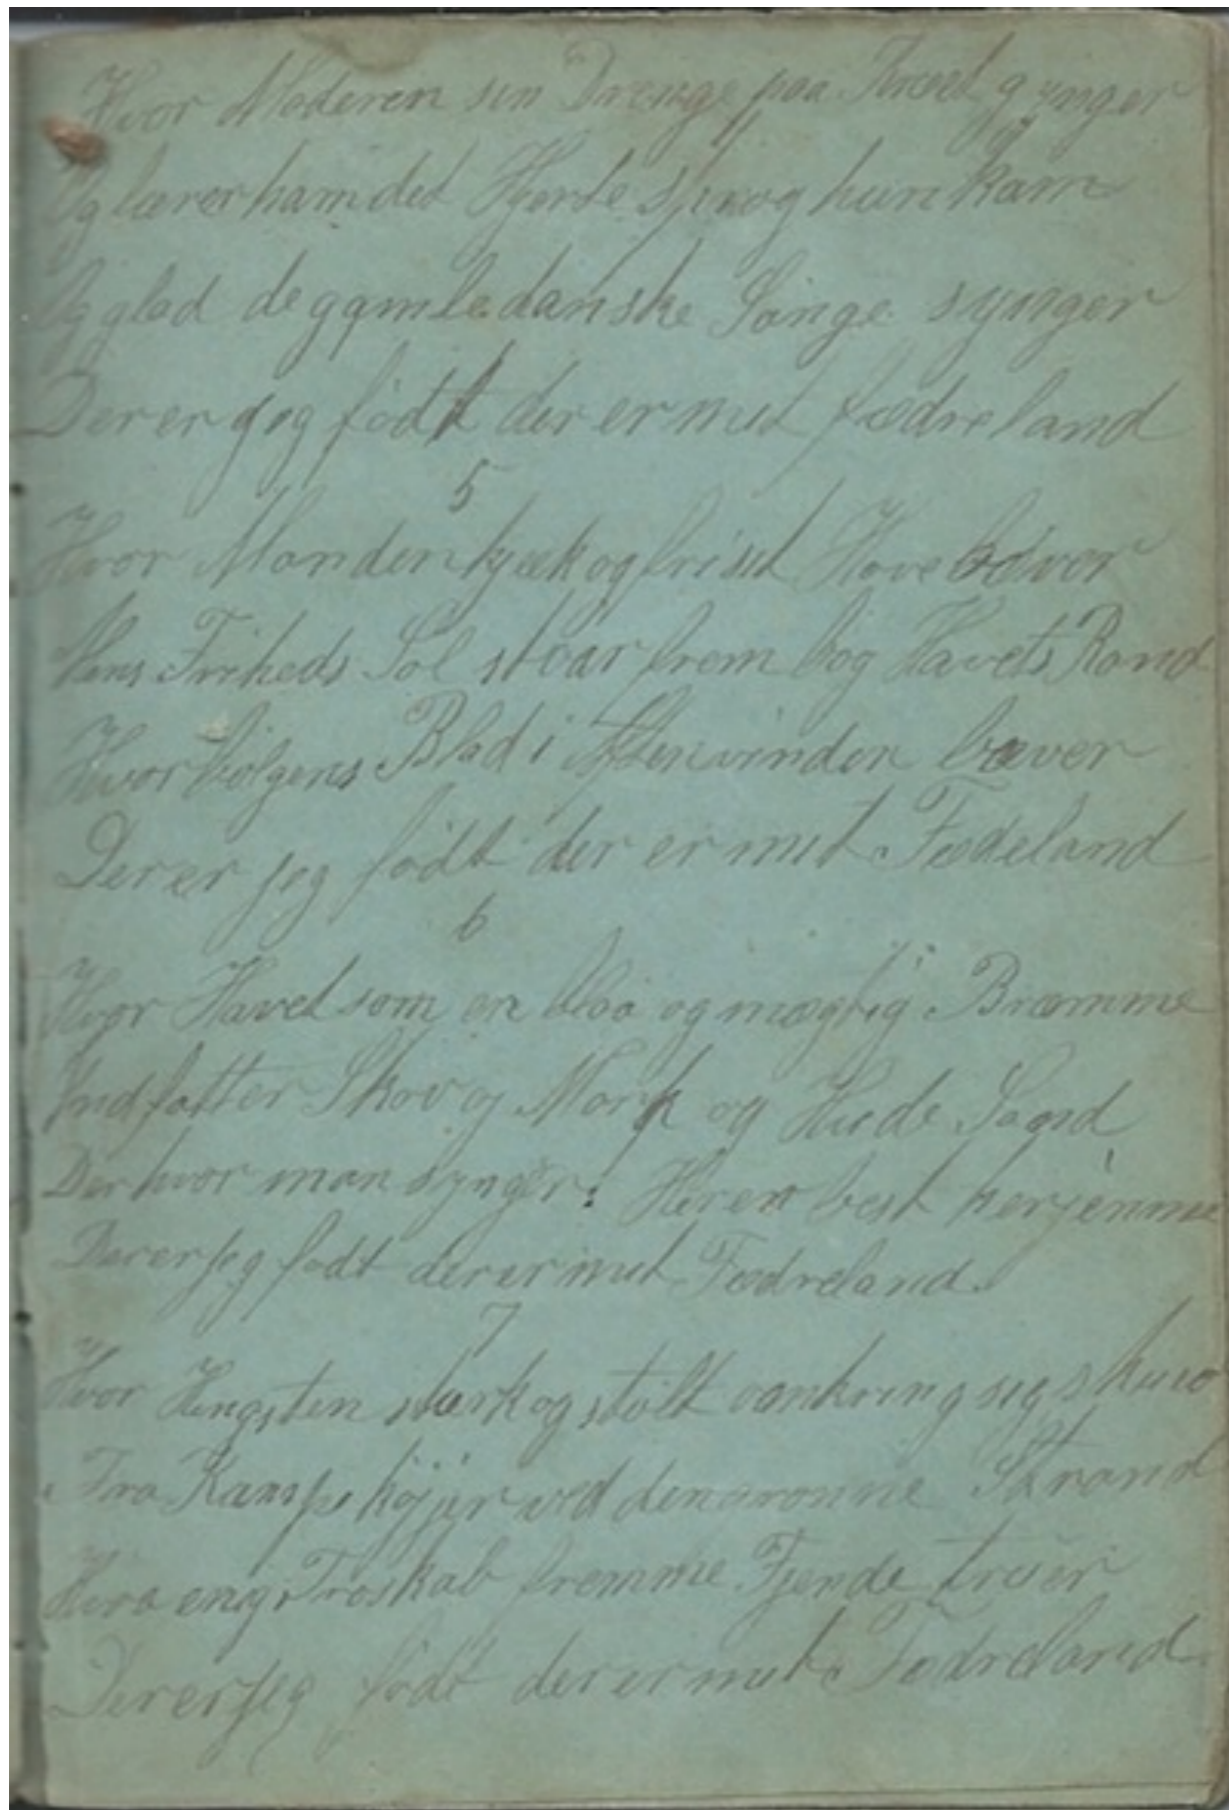 Hvor Moderen sin Drenge paa Knæet gynger
Og lærer ham det Hjerte sprog hun kan
Og glad de gamle danske Sange synger
Der er jeg født der er mit fædreland
5
Hvor Manden kjæk og frisk Have
Friheds Sol staar frem bog Havets Rand
Hvor bølgens Blad i Aftenvinden bæver
Der er jeg født der er mit Fædeland
6
Hvor Havet som en blaa og mægtig Bræmme
Indfatter Skov og Mark og Hede Sand
Der hvor man synger: Her er best her jemme
Der er jeg født der er mit Fædreland.
7
Hvor Hengsten stærk og stolt omkring sig skuer
Fra Kampe højjer ved den Strand
Troskab fremme Fjende truer
Der er jeg født der er mit Fædreland.